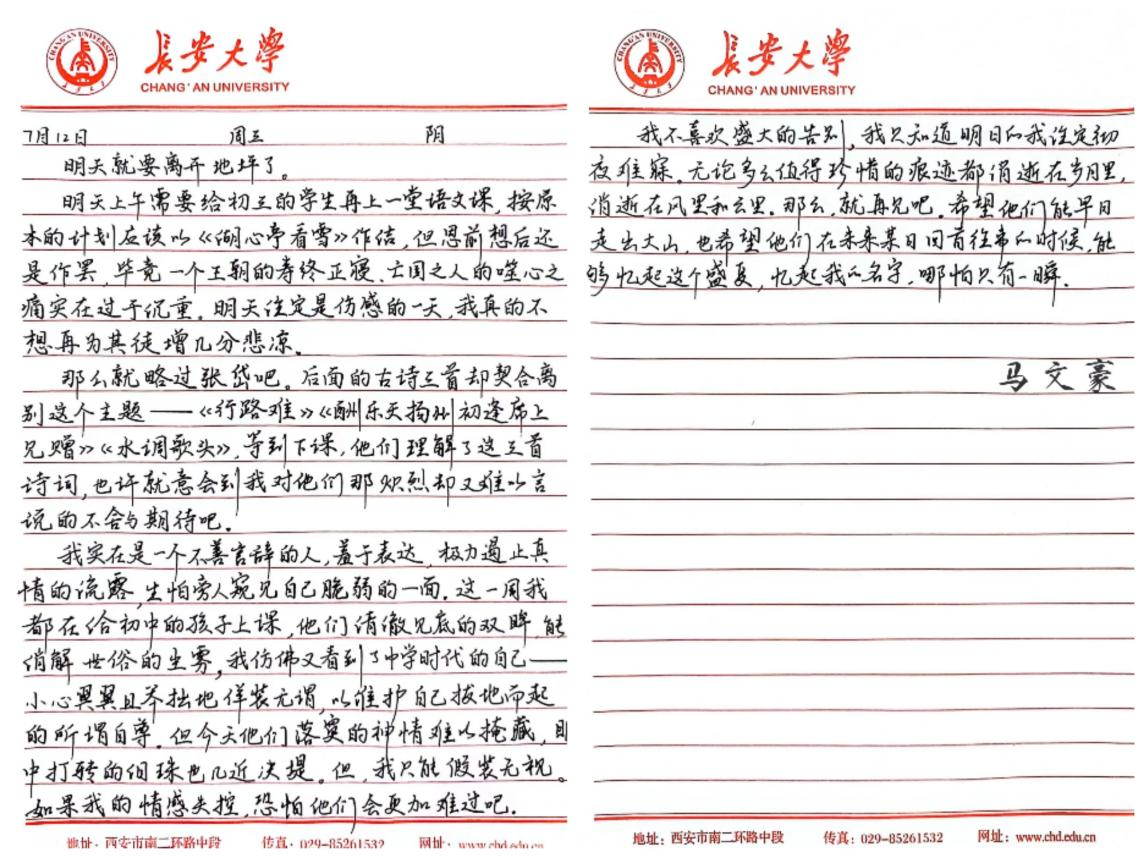 CHANG'AN UNIVERSITY
長安大學
CHANG'AN UNIVERSITY
7月12日 周五 阴
明天就要离开地坪了。
明天上午需要给初三的学生再上一堂语文课,按原
本的计划应该以《湖心亭看雪》作结,但思前想后还
是作罢,毕竟一个王朝的寿终正寝、亡国之人的噬心之
痛实在过于沉重。明天注定是伤感的一天,我真的不
想再为其徒增几分悲凉。
那么就略过张岱吧。后面的古诗三首却契合离
别这个主题——《行路难》《酬乐天扬州初逢席上
见赠》《水调歌头》,等到下课,他们理解了这三首
诗词,也许就意会到我对他们那炽烈却又难以言
说的不舍与期待吧。
我实在是一个不善言辞的人,羞于表达,极力遏止真
情的流露,生怕旁人窥见自己脆弱的一面。这一周我
都在给初中的孩子上课,他们清澈见底的双眸,能
消解世俗的尘雾,我仿佛又看到了中学时代的自己——
小心翼翼且笨拙地佯装无谓,以维护自己拔地而起
的所谓自尊。但今天他们落寞的神情难以掩藏,目
中打转的泪珠也几近决堤。但,我只能假装无视。
如果我的情感失控,恐怕他们会更加难过吧。
地址:西安市南二环路中段 传真:029-85261532 网址:www.chd.edu.cn
CHANG'AN UNIVERSITY
長安大學
CHANG'AN UNIVERSITY
我不喜欢盛大的告别,我只知道明日的我注定彻
夜难寐。无论多么值得珍惜的痕迹都消逝在岁月里,
消逝在风里和云里。那么,就再见吧。希望他们能早日
走出大山,也希望他们在未来某日回首往事的时候,能
够忆起这个盛夏,忆起我的名字,哪怕只有一瞬.
马文豪
地址:西安市南二环路中段 传真:029-85261532 网址:www.chd.edu.cn